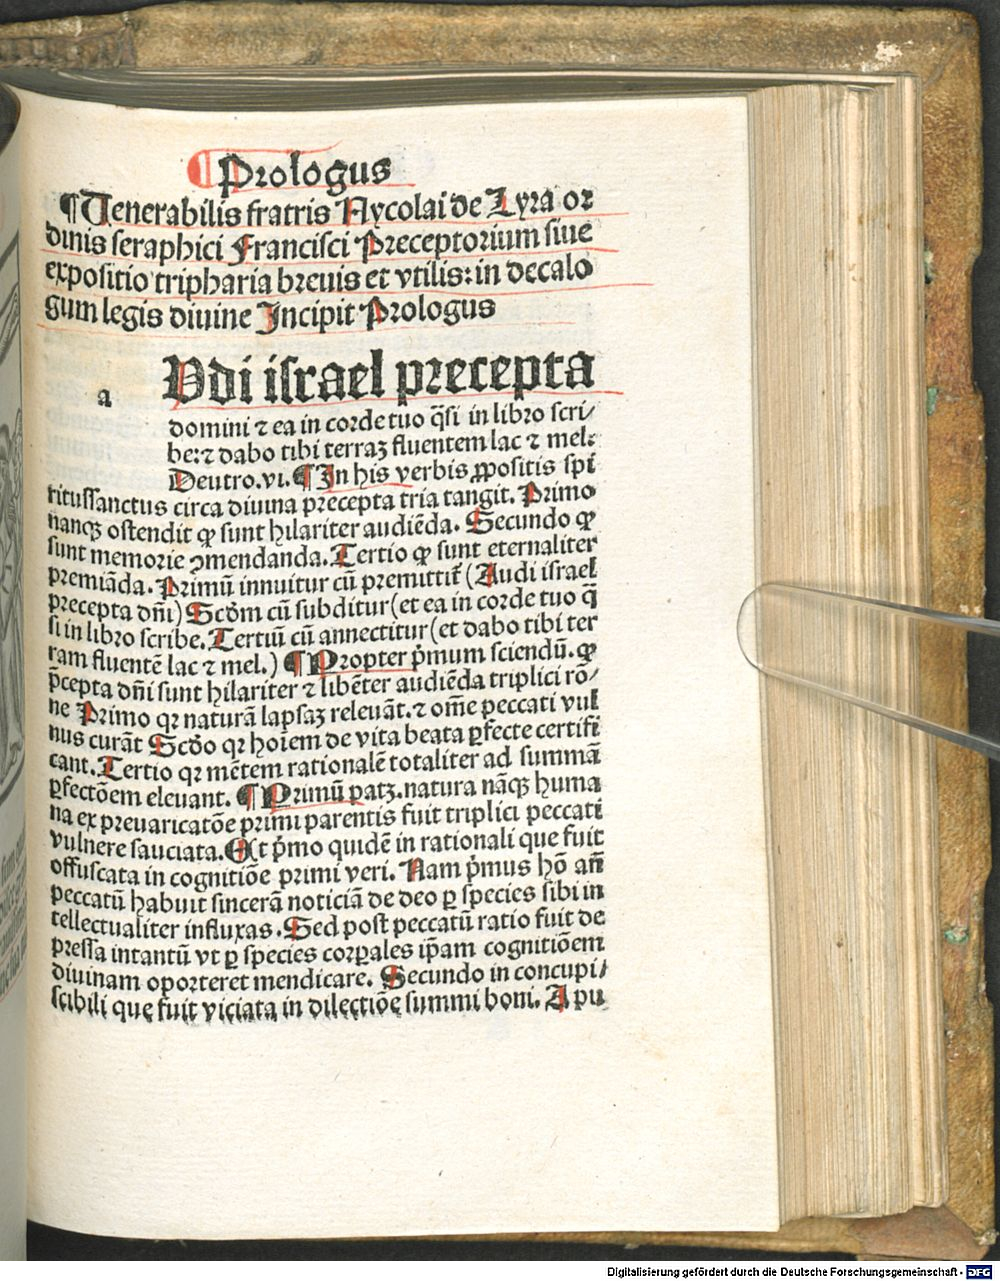 ¶ Prologus
¶ Venerabilis fratris Nycolai de Lyra oꝛ
dinis seraphici Francisci Preceptorium siue
expositio tripharia breuis et vtilis: in decalo
gum legis diuine Incipit Prologus
a Vdi israel precepta
domini ⁊ ea in corde tuo q̄si in libro scri⸗
be: ⁊ dabo tibi terraꝫ fluentem lac ⁊ mel:
Deutro.vi. ¶ In his verbis ꝓpositis spi
ritussanctus circa diuina precepta tria tangit. Primo
nanqꝫ ostendit ꝙ sunt hilariter audiēda. Secundo ꝙ
sunt memorie ꝯmendanda. Tertio ꝙ sunt eternaliter
premiāda. Primū innuitur cū premittit̄ (Audi israel
precepta dn̄i) Scd̄m cū subditur (et ea in corde tuo q̄
si in libro scribe. Tertiū cū annectitur (et dabo tibi ter
ram fluentē lac ⁊ mel.) ¶ Propter p̄mum sciendū. ꝙ
p̄cepta dn̄i sunt hilariter ⁊ libēter audiēda triplici rō⸗
ne Primo qꝛ naturā lapsaꝫ releuāt. ⁊ om̄e peccati vul
nus curāt Scd̄o qꝛ hoīem de vita beata ꝑfecte certifi
cant. Tertio qꝛ mētem rationalē totaliter ad summā
ꝑfectōem eleuant. ¶ Primū patꝫ. natura nāqꝫ huma
na ex preuaricatōe primi parentis fuit triplici peccati
vulnere sauciata. Et p̄mo quidē in rationali que fuit
offuscata in cognitiōe primi veri. Nam p̄mus hō an̄
peccatū habuit sincerā noticiā de deo ꝑ species sibi in
tellectualiter influxas. Sed post peccatū ratio fuit de
pressa intantū vt ꝑ species corꝑales ip̄am cognitiōem
diuinam oporteret mendicare. Secundo in concupi⸗
scibili que fuit viciata in dilectiōe summi boni. A pu
Digitalisierung gefördert durch die Deutsche Forschungsgemeinschaft - DFG